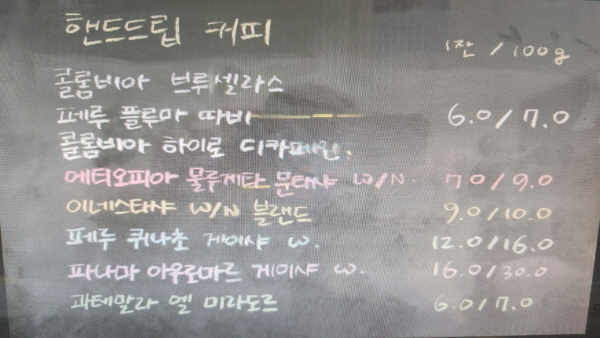 핸드드립 커피 1잔 / 100g
콜롬비아 브루셀라스
페루 플루마 따비 6.0 / 7.0
콜롬비아 하이로 디카페인.
에티오피아 물루게타 문타샤 W/N. 7.0 / 9.0
이네스타샤 W/N 블랜드 9.0 / 10.0
페루 퀴나초 게이샤 W. 12.0 / 16.0
파나마 아우로마르 게이샤 W. 16.0 / 30.0
과테말라 엘 미라도르 6.0 / 7.0